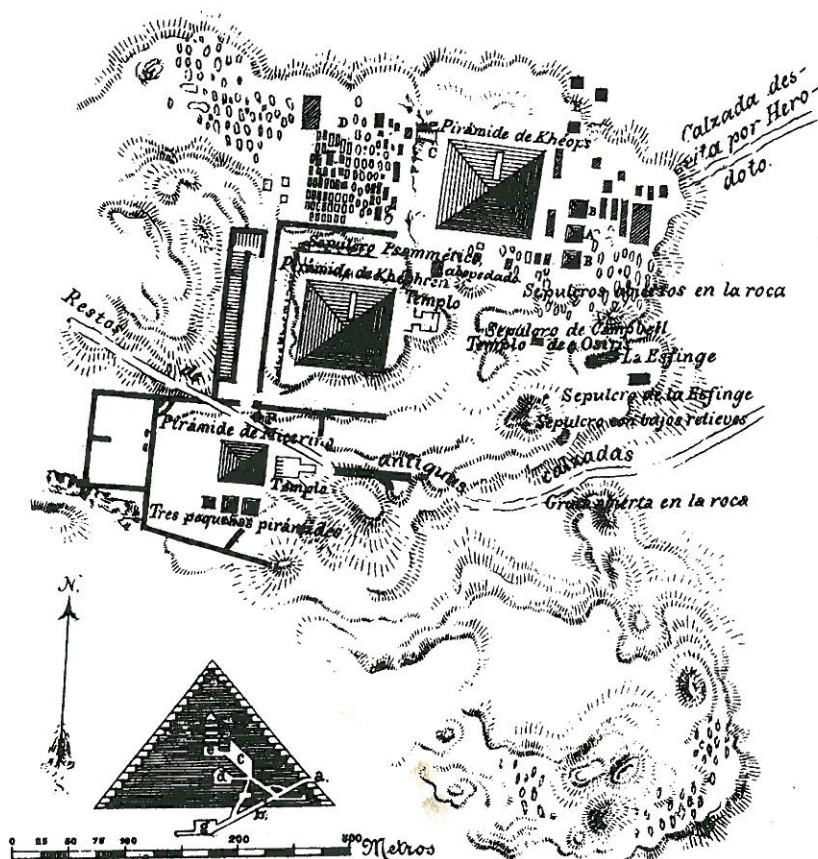 Calzada des-
crita por Hero-
doto.
Pirámide de Khéops
D
C
B
A
B
Sepulcro Psammético
abovedado
Pirámide de Khephren
Templo
Sepulcros abiertos en la roca
Sepulcro de Campbell
Templo de Osiris
La Esfinge
Sepulcro de la Esfinge
Sepulcro con bajos relieves
Restos de antiguas calzadas
Pirámide de Micerino
Templo
Tres pequeñas pirámides
Gruta abierta en la roca
N.
S.
a.
b.
c
d
e
g
0 25 50 75 100 200 300 Metros